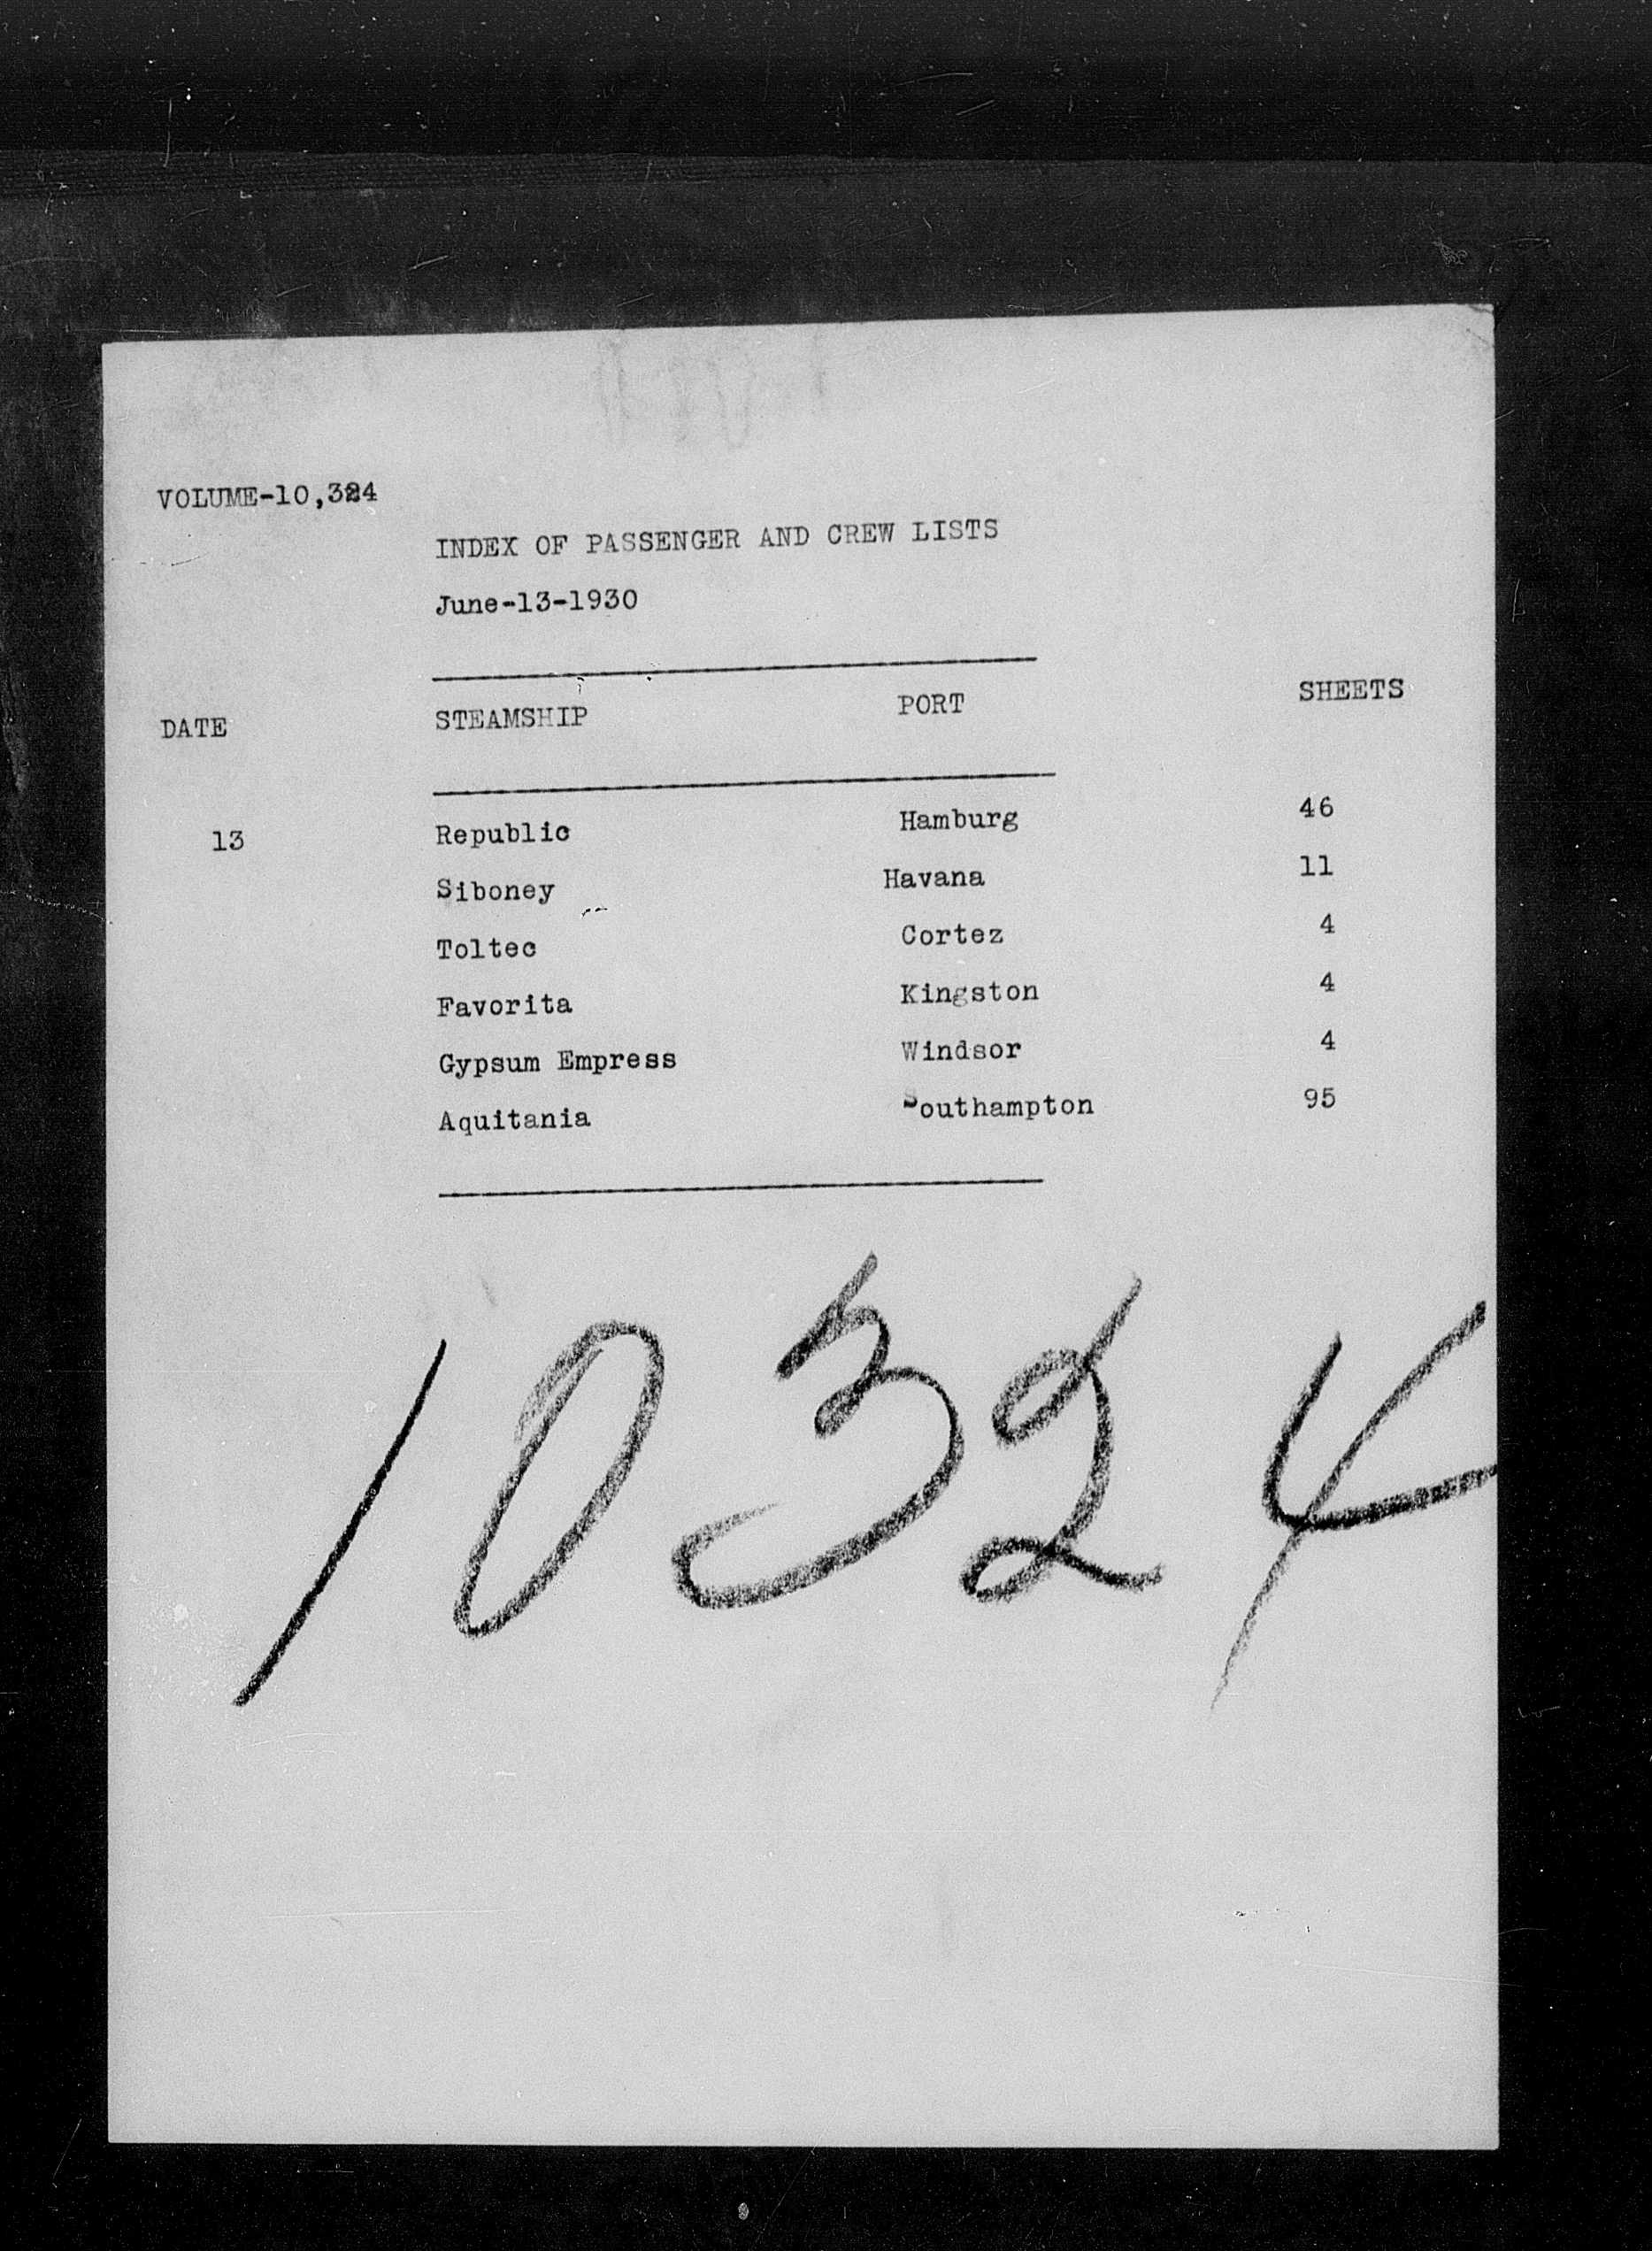 VOLUME-10,324
INDEX OF PASSENGER AND CREW LISTS
June-13-1930
DATE STEAMSHIP PORT SHEETS
13 Republic Hamburg 46
Siboney Havana 11
Toltec Cortez 4
Favorita Kingston 4
Gypsum Empress Windsor 4
Aquitania Southampton 95
10324